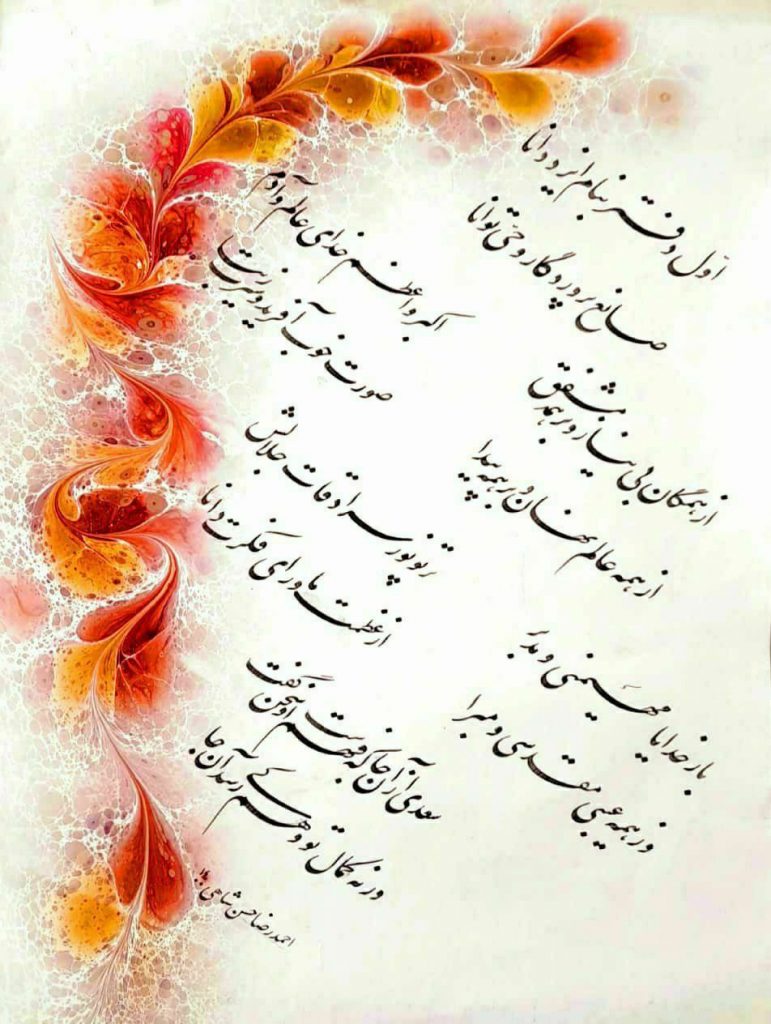 اول دفتر بنام ایزد دانا
صانع پروردگار و حی توانا
اکبر و اعظم خدای عالم و آدم
صورت خوب آفرید و سیرت زیبا
از همگان بی نیاز و بر همه مشفق
از همه عالم نهان و بر همه پیدا
پرتو نور سرادقات جلالش
از عظمت ماورای فکرت دانا
بار خدایا مهیمنی و مدبر
وز همه عیبی مقدسی و مبرا
سعدی از آن جا که فهم اوست سخن گفت
ورنه کمال تو وهم کی رسد آن جا
احمدرضا حسن شاهی